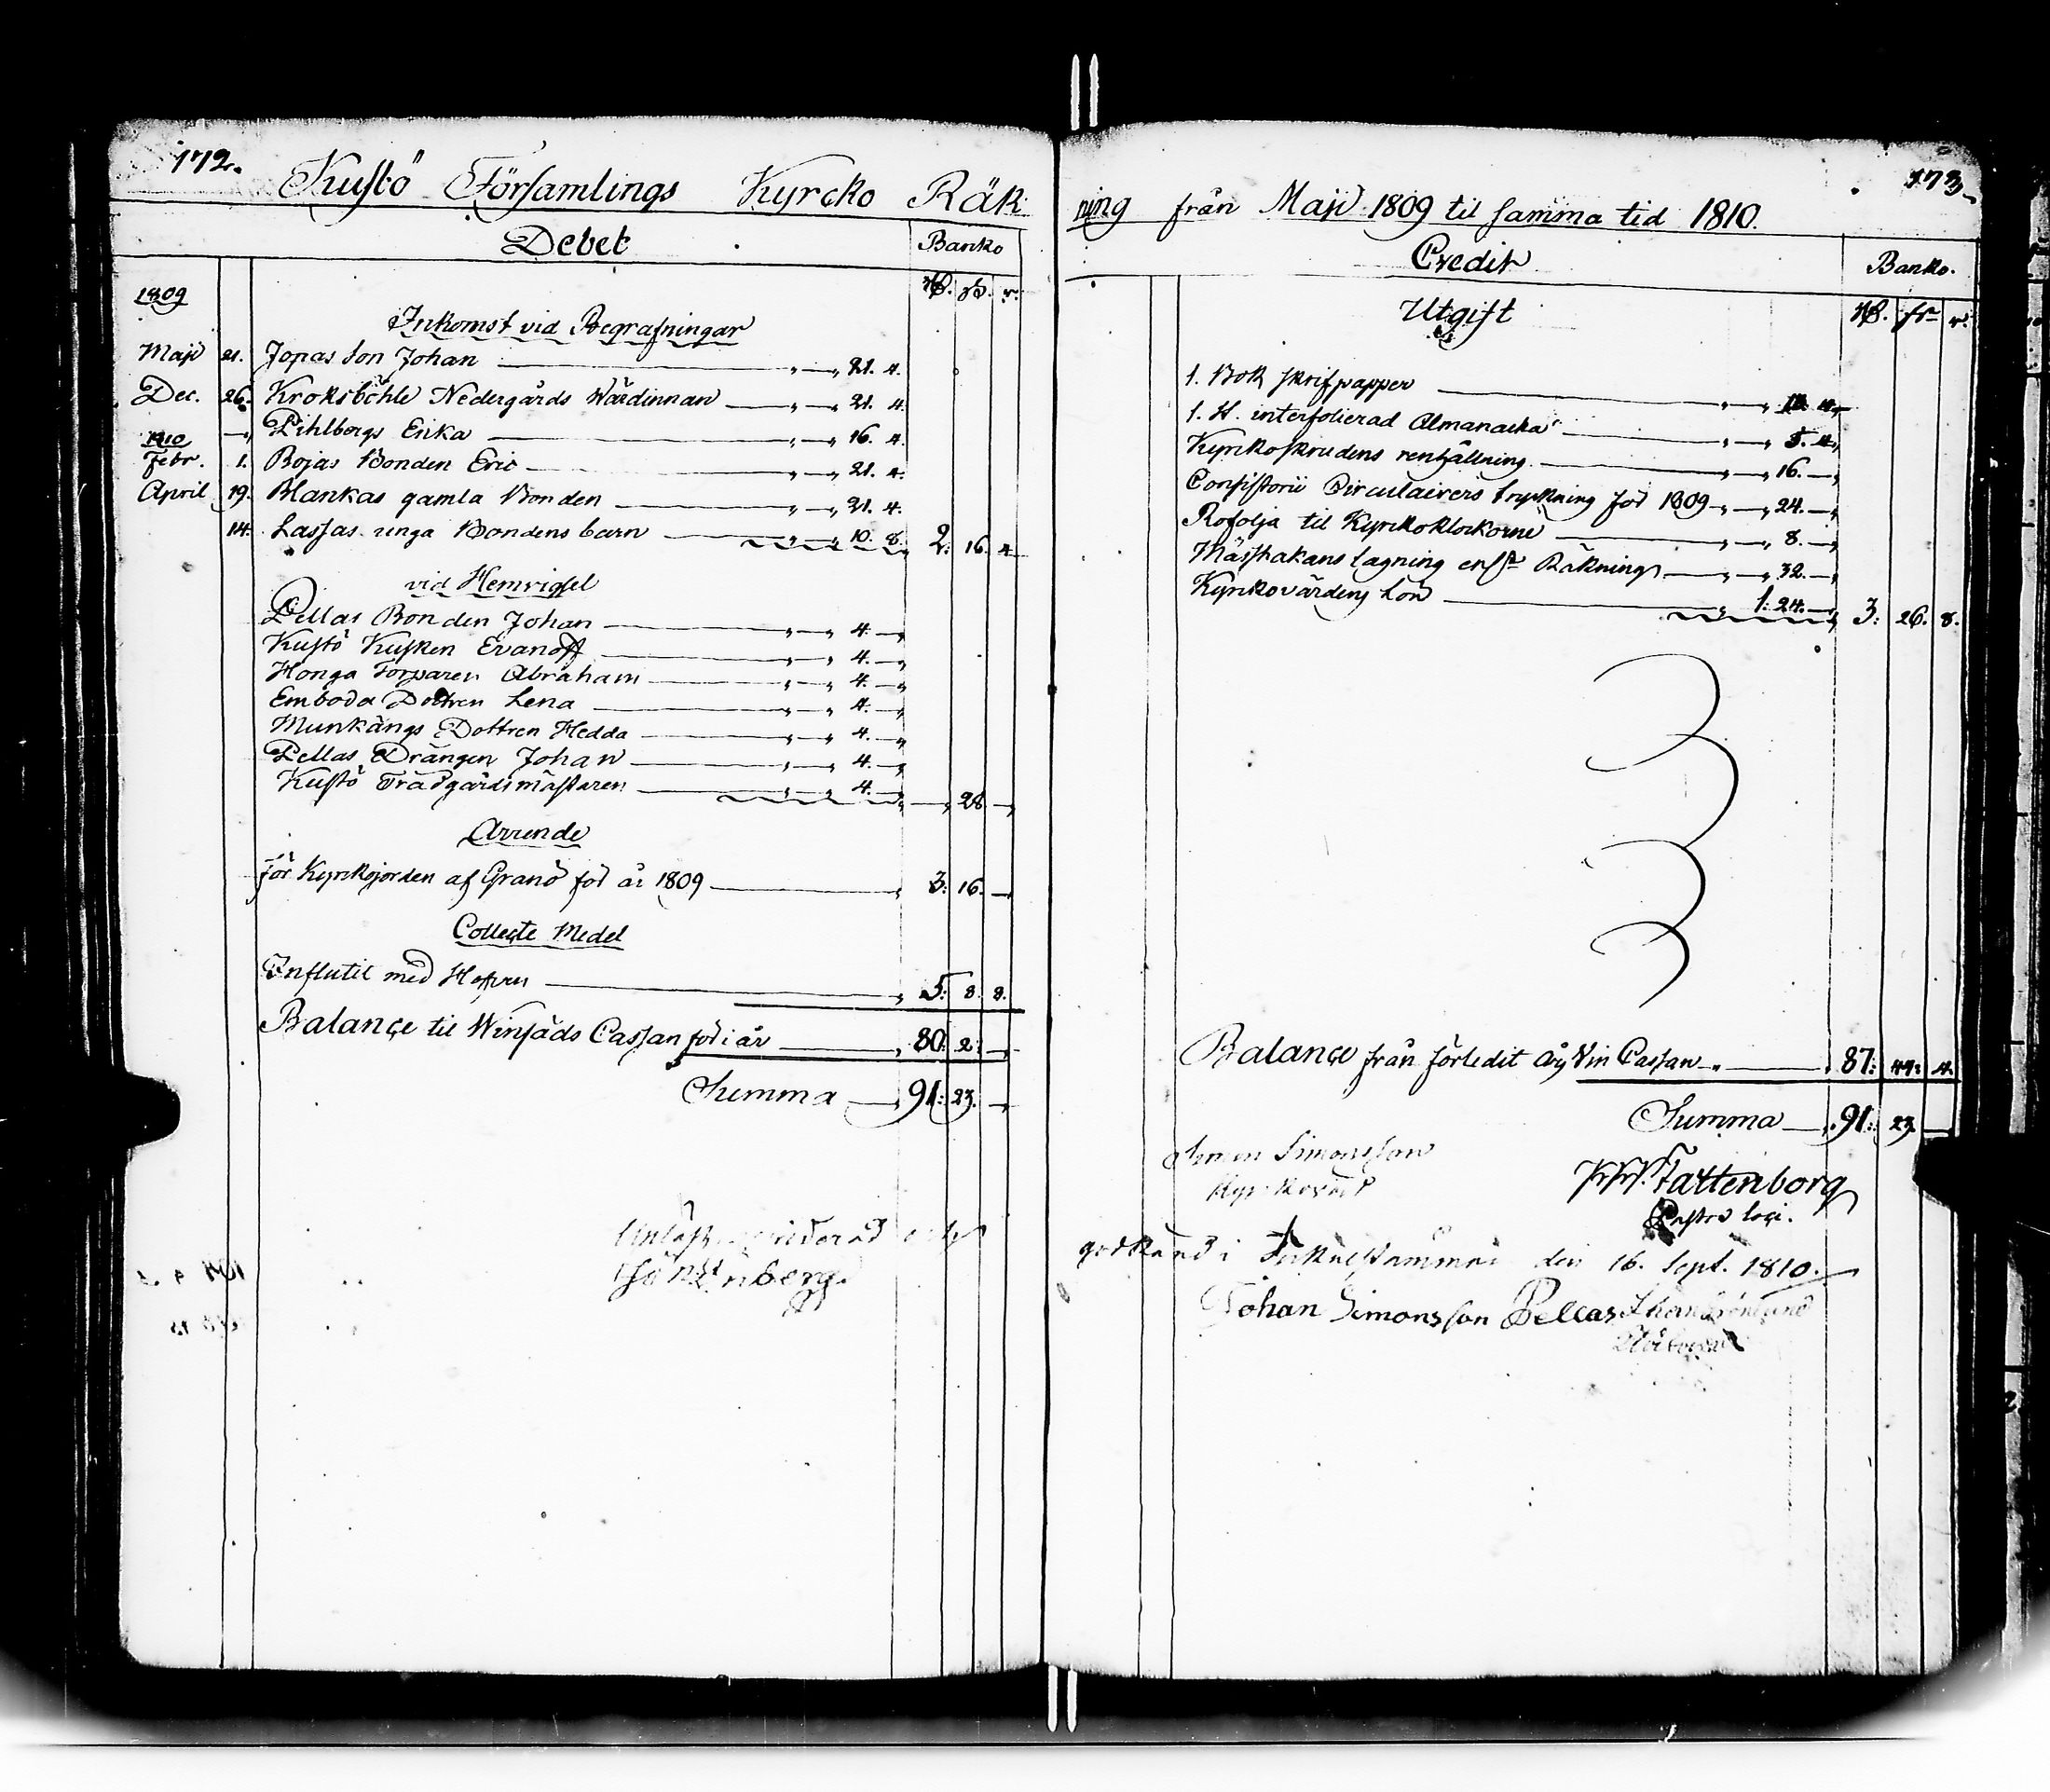 172.
Kustö Församlings Kyrcko Räk
Debet Banko
1809
Inkomst vid Begrafningar
Maji 21. Jopas Son Johan 21. 4.
Dec. 26. Kroksböhle Nedergårds Wärdinnan 21. 4.
Pihlborgs Erika 16. 4.
1810
Febr. 1. Bojas Bonden Eric 21. 4.
April 19. Blankas gamla Bonden 21. 4.
14. Lassas unga Bondens barn 10. 8. 2. 16. 4.
vid Hemvigsel
Pellas Bonden Johan 4.
Kustö Kusken Evanoff 4.
Honga Torparen Abraham 4.
Emboda Dottren Lena 4.
Munkängs Dottren Hedda 4.
Pellas Drängen Johan 4.
Kustö Trädgårdsmästaren 4. 28
Arrende
för Kyrkojorden af Granö för år 1809 3: 16.
Collecte Medel
Influtit med Hofven 5: 8. 8.
Balançe til Winsäds Cassan för i år 80: 2:
Summa 91: 23.
173
ning från Maji 1809 til samma tid 1810.
Credit Banko.
Utgift
1. Bok skrifpapper
1. St. interfolierad Almanacka 5. 4.
Kyrkoskrudens renhållning 16.
Consistorii Circulairers tryckning för 1809 24.
Rofolja til Kyrkoklockorne 8.
Mässhakans lagning enl. Räkning 32.
Kyrkovärdens Lön 1: 24. 3: 26. 8.
Balançe från förledit års Vin Cassan 87: 44: 4.
Summa 91: 23.
Simonsson
Tattenborg
Pastor loci.
godkänd i Sockne Stämma den 16. Sept. 1810.
Johan Simonsson Pellas